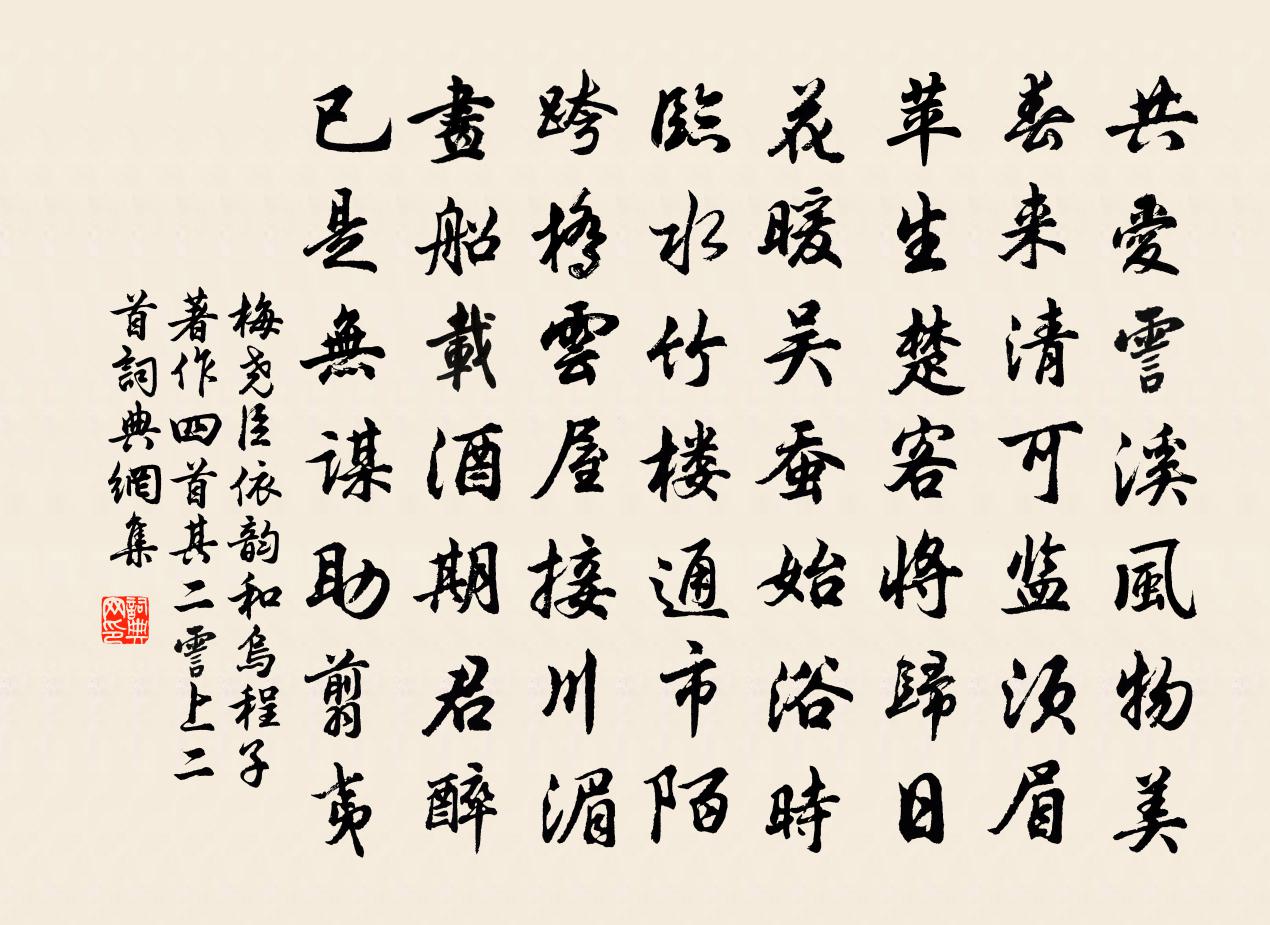 共愛霅溪風物美
春来清可监须眉
苹生楚客将歸日
花暖吴蚕始浴時
臨水竹楼通市陌
跨橋雲屋接川湄
畫船載酒期君醉
已是無謀助翦夷
梅尧臣依韵和烏程子
著作四首其二霅上二
首詞典網集
詞典网印